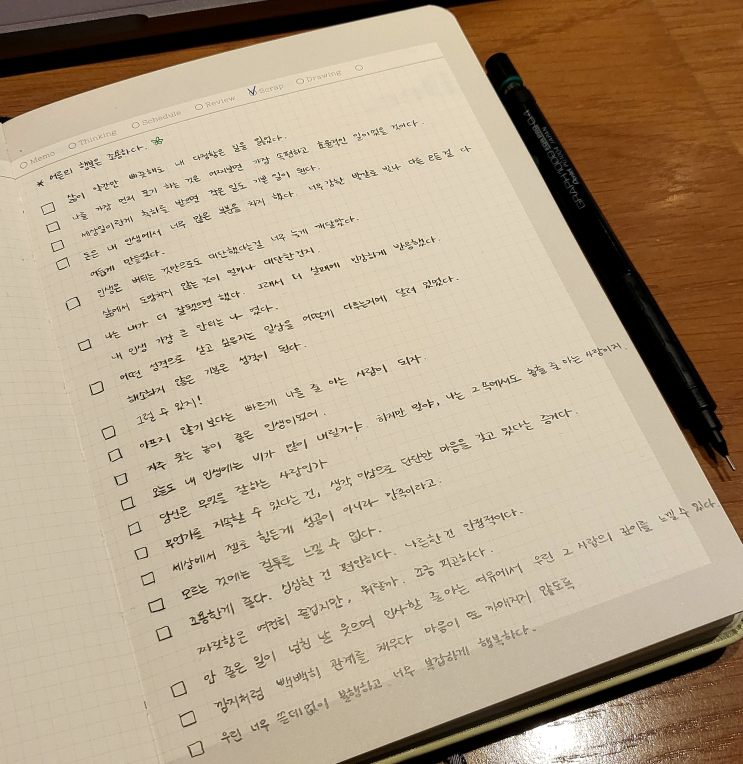 Memo Thinking Schedule Review Scrap Drawing
* 어른의 행복은 조용하다.
삶이 약간만 삐끗해도 내 다정함은 길을 잃었다.
나를 가장 먼저 포기 하는 것은 어찌보면 가장 손편하고 효율적인 일이었을 것이다.
세상일이란게 축하를 받으면 작은 일도 기쁜 일이 된다.
돈은 내 인생에서 너무 많은 부분을 차지 했다. 너무 강한 발광로 빛나 다른 모든걸 다
어둡게 만들었다.
인생은 버티는 것만으로도 대단했다는걸 너무 늦게 깨달았다.
삶에서 도망치지 않는 것이 얼마나 대단한건지.
나는 내가 더 잘됐으면 했다. 그래서 더 실패에 민감하게 반응했다.
내 인생 가장 큰 안티는 나 였다.
어떤 성격으로 살고 싶은지는 일상을 어떻게 다루는지에 달려 있었다.
해소되지 않은 기분은 성격이 된다.
그럴 수 있지!
아프지 않기 보다는 빠르게 나을 줄 아는 사람이 되자.
자주 웃는 놈이 좋은 인생이었어.
오늘도 내 인생에는 비가 많이 내릴거야. 하지만 알아, 나는 그 속에서도 춤출 줄 아는 사람이지.
당신은 무엇을 잘하는 사람인가
무언가를 지속할 수 있다는 건, 생각 이상으로 단단한 마음을 갖고 있다는 증거다.
세상에서 젤로 힘든게 성공이 아니라 만족이라고.
모르는 것에는 질투를 느낄 수 없다.
조용한게 좋다. 심심한 건 편안하다. 나른한 건 안정적이다.
짜릿함은 여전히 즐겁지만, 뭐랄까. 조금 피곤하다.
안 좋은 일이 넘친 날 웃으며 인사할 줄 아는 여유에서 우린 그 사람의 깊이를 느낄 수 있다.
깜지처럼 빽빽히 관계를 채우다 마음이 또 까매지지 않도록
우린 너무 쓸데없이 불행하고 너무 복잡하게 행복하다.
GRAPH1000
Pentel
JAPAN